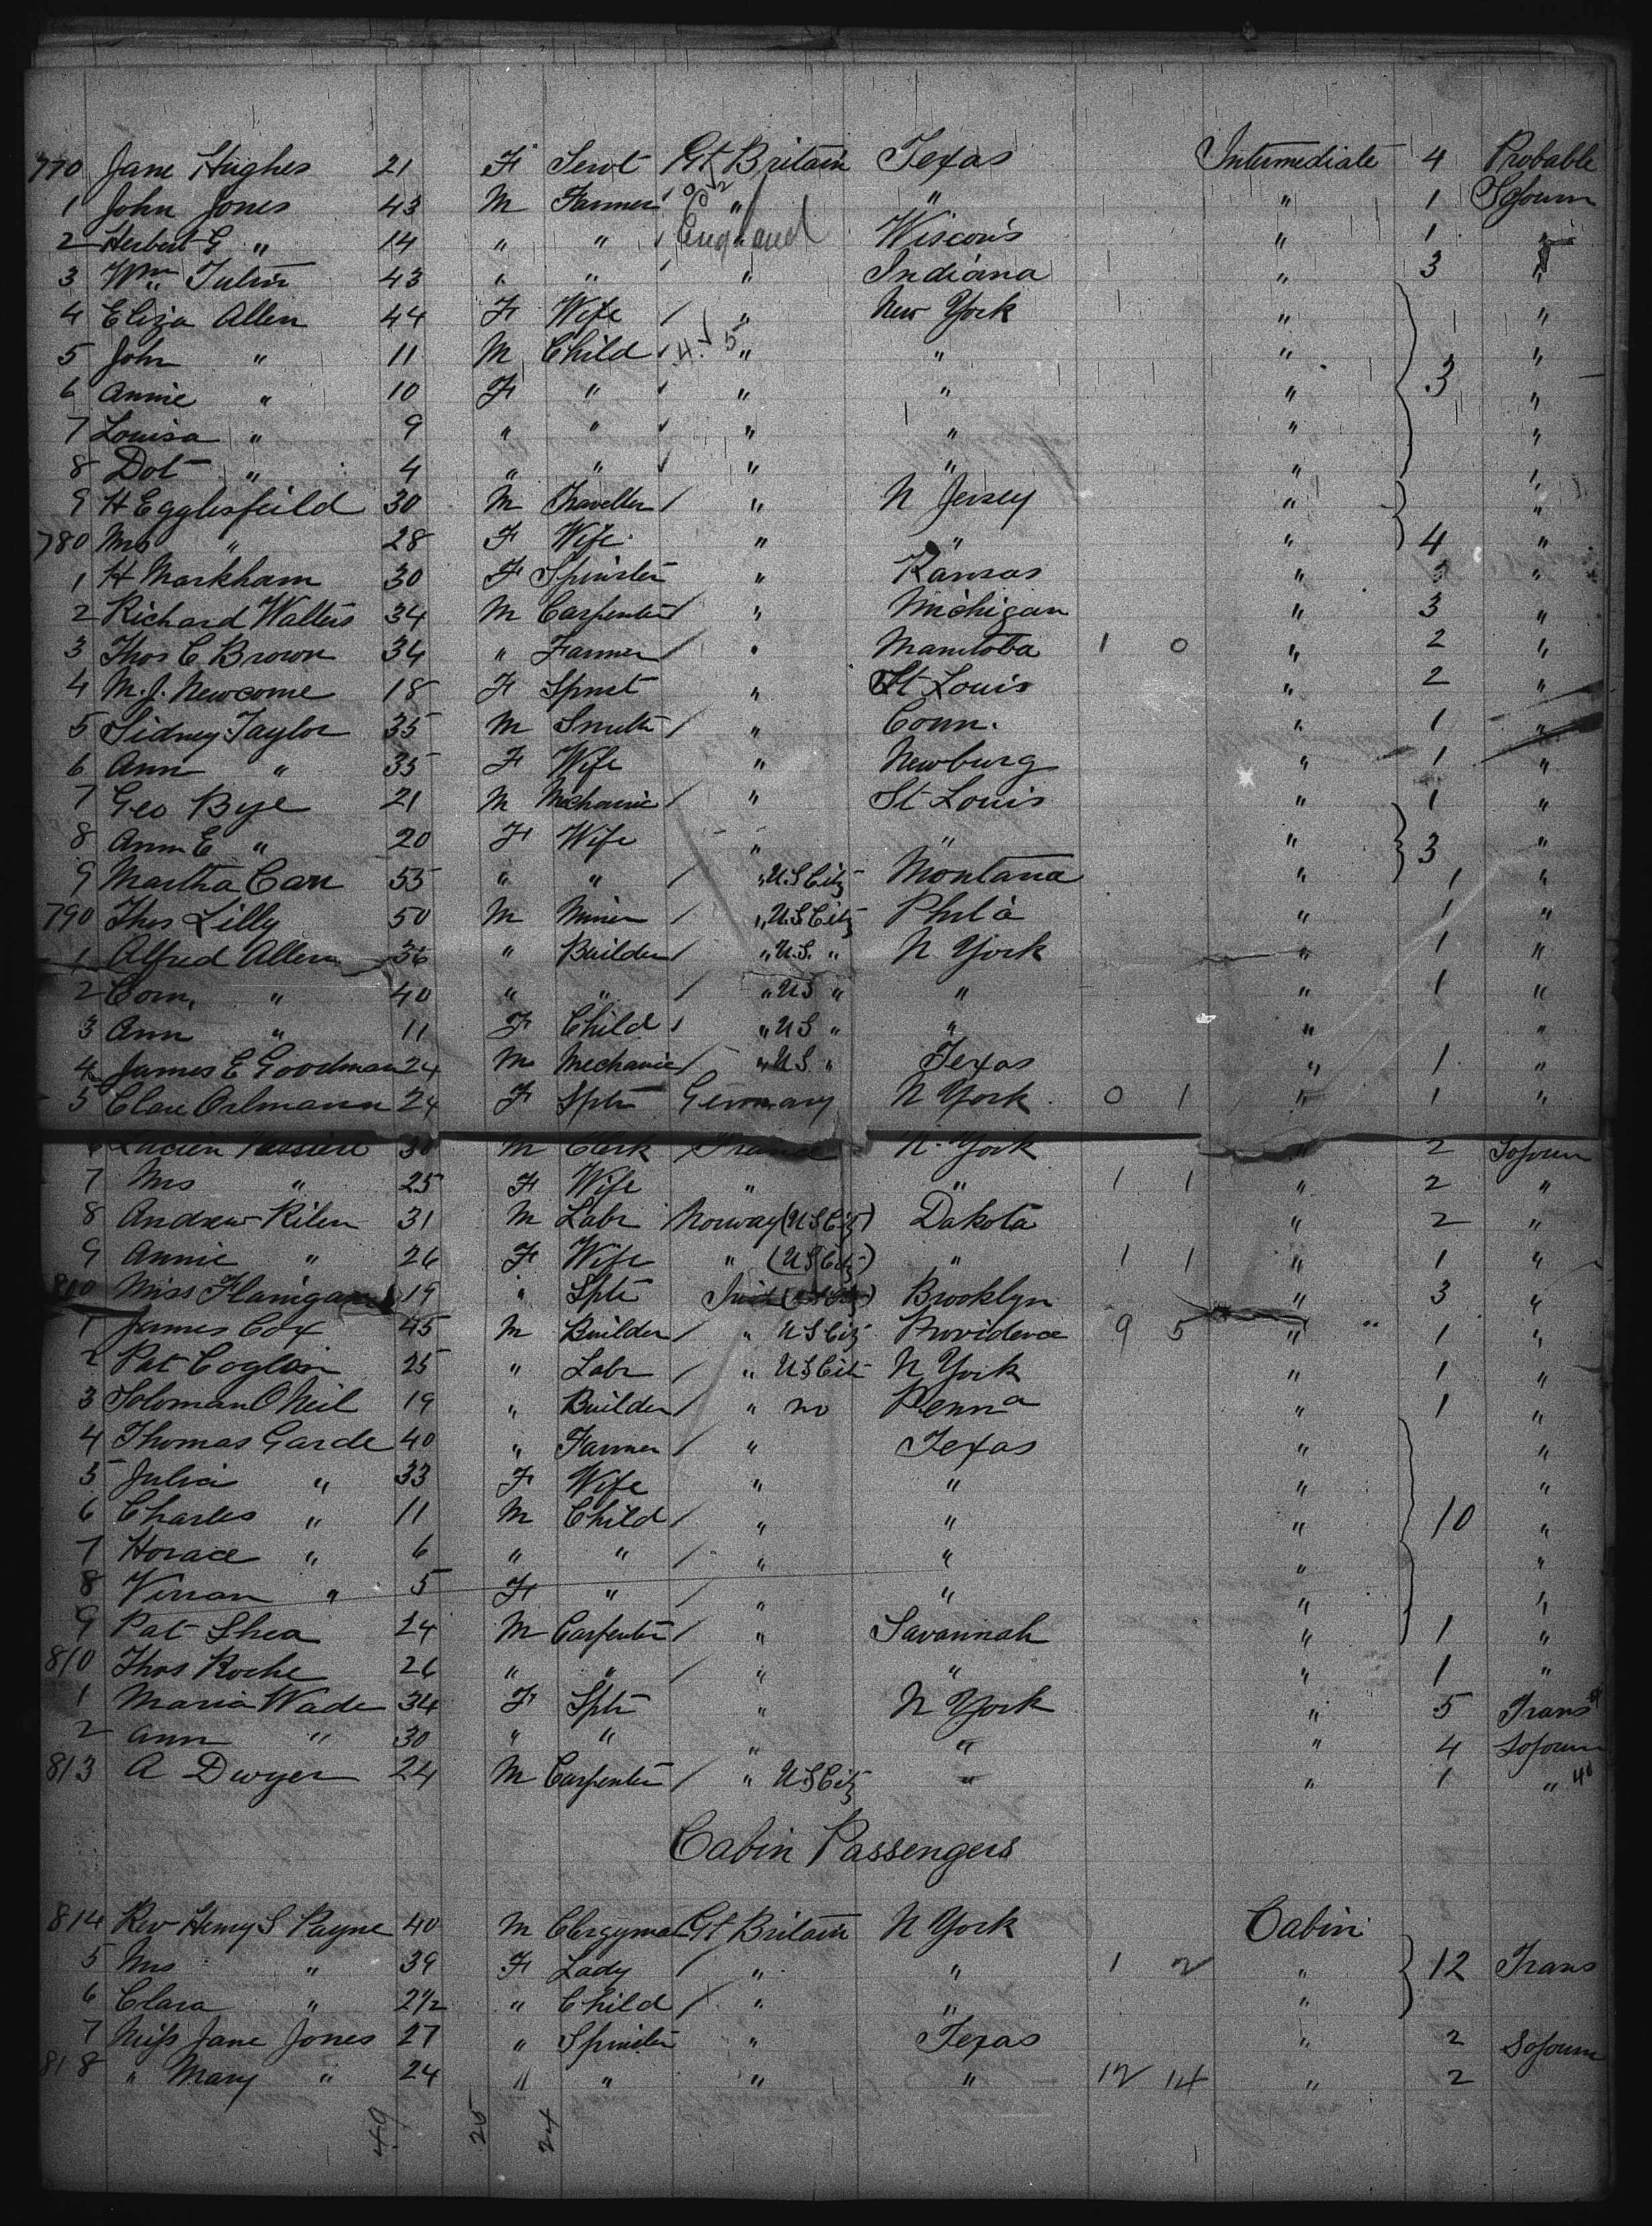 770 Jane Hughes 21 F Servt Gt Britain Texas Intermediate 4 Probable
1 John Jones 43 M Farmer " " " 1 Sojourn
2 Herbert G " 14 " " England Wiscons " 1 "
3 Wm 43 " " " Indiana " 3 "
4 Eliza Allen 44 F Wife / " New York " "
5 John " 11 M Child " " " "
6 Annie " 10 F " " " " 3 "
7 Louisa " 9 " " " " " "
8 Dot " 4 " " " " " "
9 H Egglesfeild 30 M Traveller / " N Jersey " "
780 Mrs " 28 F Wife " " " 4 "
1 H Markham 30 F Spinster " Kansas " "
2 Richard Walters 34 M Carpenter / " Michigan " 3 "
3 Thos C Brown 34 " Farmer / " Manitoba 1 0 " 2 "
4 M. J. Newcome 18 F Spnst " St Louis " 2 "
5 Sidney Taylor 35 M Smith / " Conn. " 1 "
6 Ann " 35 F Wife " Newburg " 1 "
7 Geo Bye 21 M Mechanic / " St Louis " 1 "
8 Ann E " 20 F Wife " " " 3 "
9 Martha Carr 55 " " / " U.S Citz Montana " 1 "
790 Thos Lilly 50 M Miner / " U.S Citz Phila " 1 "
1 Alfred Allen 36 " Builder / " U.S. " N York " 1 "
2 Corn. " 40 " " / " US " " " 1 "
3 Ann " 11 F Child / " US " " " "
4 James E Goodman 24 M Mechanic / " US " Texas " 1 "
5 Clare Orlmann 24 F Sptr Germany N York 0 1 " 1 "
6 Lucien 30 M Clerk France N. York " 2 Sojourn
7 Mrs " 25 F Wife " " 1 1 " 2 "
8 Andrew Rilen 31 M Labr Norway (US Citz) Dakota " 2 "
9 Annie " 26 F Wife " (US Citz) " 1 1 " 1 "
800 Miss Flanigan 19 " Sptr Brooklyn " 3 "
1 James Cox 45 M Builder / " US Citz Providence 9 5 " 1 "
2 Pat Coglan 25 " Labr / " US Citz N York " 1 "
3 Soloman O Neil 19 " Builder / " no Penna " 1 "
4 Thomas Garde 40 " Farmer / " Texas " "
5 Julia " 33 F Wife " " " "
6 Charles " 11 M Child / " " " 10 "
7 Horace " 6 " " / " " " "
8 " 5 F " / " " " "
9 Pat Shea 24 M Carpenter / " Savannah " 1 "
810 Thos Roche 26 " " / " " " 1 "
1 Maria Wade 34 F Sptr " N York " 5 Trans
2 Ann " 30 " " " " " 4 Sojourn
813 A Dwyer 24 M Carpenter / " US Citz " " 1 " 40
Cabin Passengers
814 Rev Henry S Payne 40 M Clergyman Gt Britain N York Cabin
5 Mrs " 39 F Lady / " " 1 2 " 12 Trans
6 Clara " 2½ " Child / " " "
7 Miss Jane Jones 27 " Spinster " Texas " 2 Sojourn
818 " Mary " 24 " " " " 12 14 " 2
49 25 24